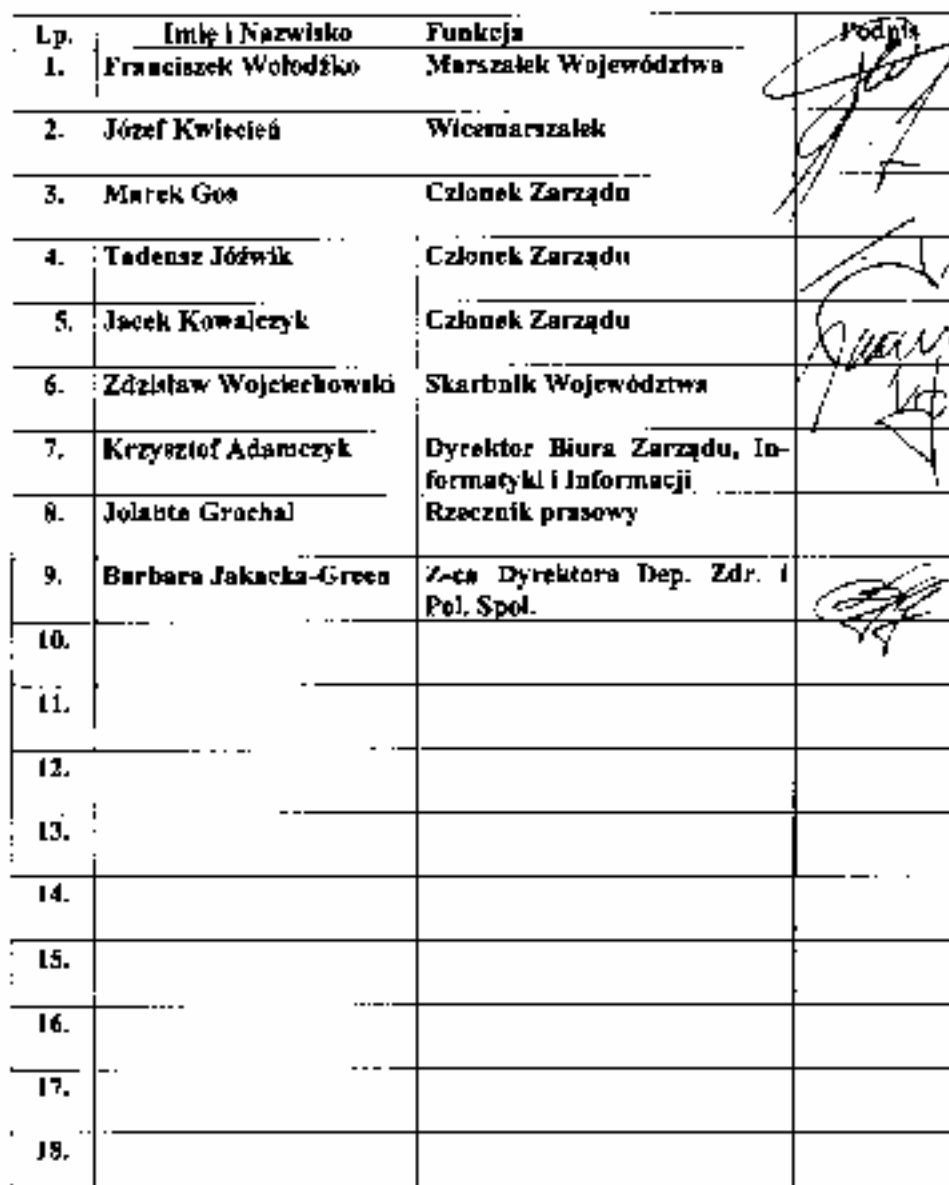 Lp. Imię i Nazwisko Funkcja Podpis
1. Franciszek Wołodźko Marszałek Województwa
2. Józef Kwiecień Wicemarszałek
3. Marek Gos Członek Zarządu
4. Tadeusz Jóźwik Członek Zarządu
5. Jacek Kowalczyk Członek Zarządu
6. Zdzisław Wojciechowski Skarbnik Województwa
7. Krzysztof Adamczyk Dyrektor Biura Zarządu, In-
formatyki i Informacji
8. Jolanta Grochal Rzecznik prasowy
9. Barbara Jakacka-Green Z-ca Dyrektora Dep. Zdr. i
Pol. Społ.
10.
11.
12.
13.
14.
15.
16.
17.
18.